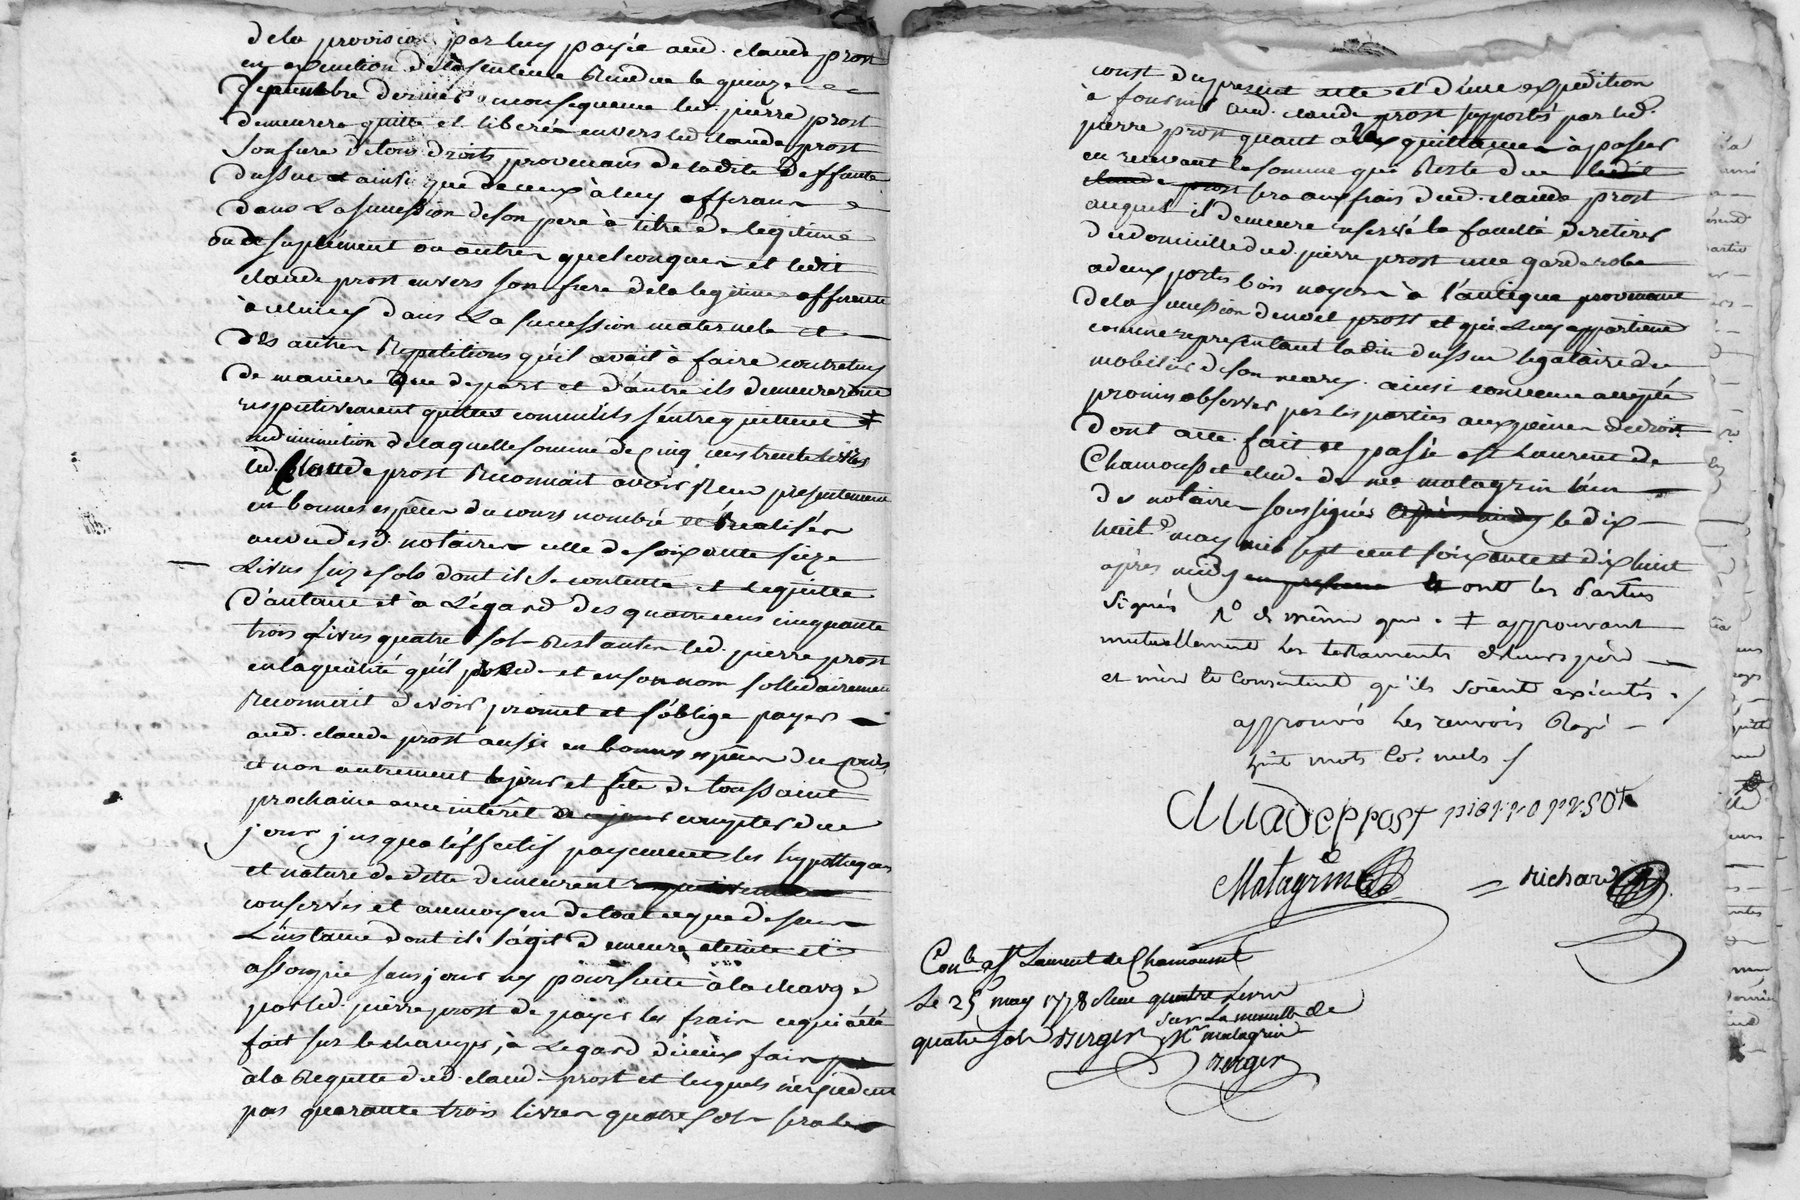 de la provision par luy payée aud. claude prost
en execution de la sentence Rendue le quinze
septembre dernier, en consequence led. pierre prost
demeurera quitte et liberé envers led. claude prost
son frere de tous droits provenans de ladite deffunte
dussuc et ainsi que de ceux à luy afferans
dans La succession de son pere à titre de legitime
ou de suplement ou autres quelconques et ledit
claude prost envers son frere de la legitime afferente
à celuicy dans La succession maternelle et
des autres Repetitions qu'il avoit à faire contre luy
de maniere que de part et d'autre ils demeureront
respectivement quittes comme ils s'entrequittent ‡
en diminution de laquelle somme de cinq cens trente livres
led. Claude prost Reconnait avoir Reçu presentement
en bonnes espèces du cours nombré et Realisés
au vu desd. notaires celle de soixante seize
Livres seize sols dont il se contente et le quitte
d'autant et à L'égard des quatre cens cinquante
trois Livres quatre sols Restantes led. pierre prost
en la qualité qu'il procède et en son nom sollidairement
Reconnait devoir promet et s'oblige payer
aud. claude prost aussi en bonnes espèces du Cours
et non autrement le jour et fête de toussaint
prochaine avec intérêt de ce jour compter du
jour jusqua l'effectif payement les hypotheques
et nature de dette demeurent
conservés et au moyen de tout ce que dessus
L'instance dont il s'agit demeure éteinte et
assoupie sans jour ny poursuite à la charge
par led. pierre prost de payer les frais ce qui a été
fait sur le champ, à L'égard d'iceux faits
à la Requette dud. claude prost et lesquels n'excedent
pas quarante trois livres quatre sols seront
cout du present acte et d'une expédition
à fournir aud. claude prost supportés par led.
pierre prost quant à la quittance à passer
en recevant la somme qui Reste due ledit
claude prost sera aux frais dud. claude prost
auquel il demeure reservé la faculté de retirer
du domicille dud. pierre prost une garderobe
a deux portes bois noyer à l'antique provenant
de la succession de noel prost et qui Luy appartient
comme representant ladite dussuc legataire du
mobilier de son mary. ainsi convenu accepté
promis observer par les parties aux peines de droit
dont acte fait et passé a St Laurent de
Chamousset etude de me matagrin l'un
des notaires soussignés après midy le dix
huit may mil sept cent soixante et dix huit
après midy en presence et ont les Parties
signés Ro de même que. ‡ approuvant
mutuellement les testaments de leurs père
et mère et Consentent qu'ils soient exécutés. /
approuvé les renvois Rayé
huit mots co. nuls /
CLLADe ppost pierre prost
Matagrin = Richard
Conlé a St Laurent de Chamousset
Le 25 may 1778 Reçu quatre Livres
quatre sols Berger sur La minutte de
Me matagrin
Berger